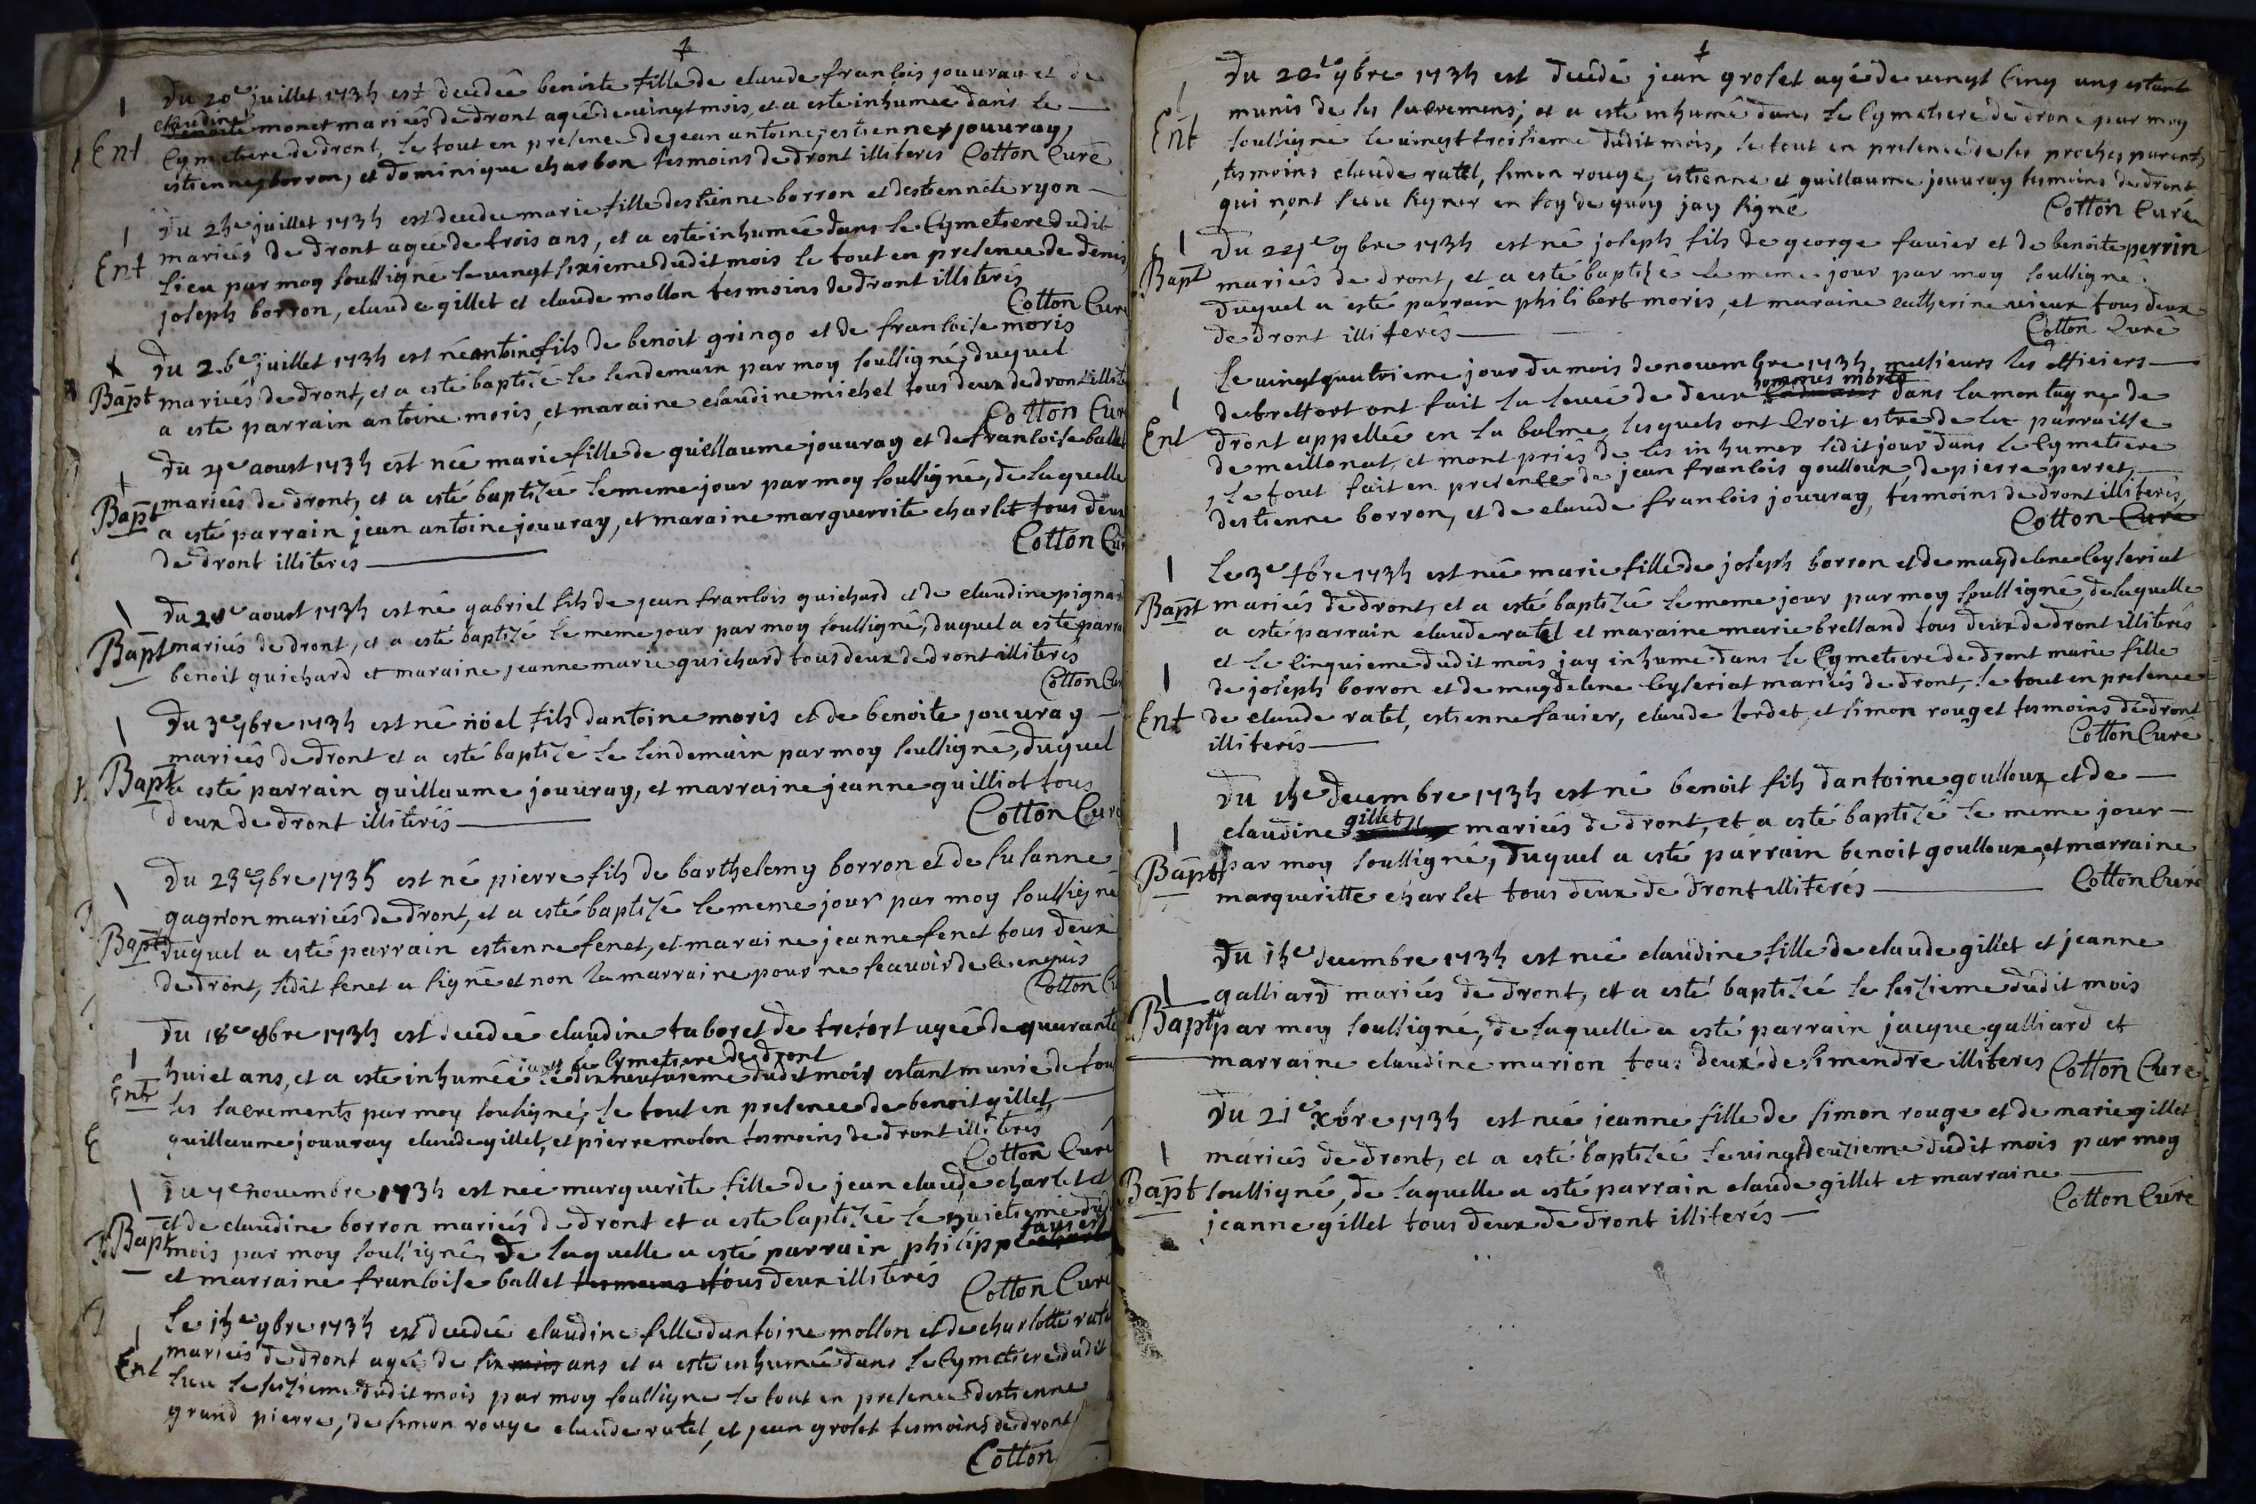 Du 20e juillet 1735 est decedeé benoite fille de claude françois jouuray et de
claudine monet mariés de dront ageé de vingt mois, et a esté inhumeé dans le
Ent
Cymetiere de dront, le tout en presence de jean antoine, estienne jouuray,
estienne borron, et dominique charbon tesmoins de dront illiterés Cotton Curé
Du 25e juillet 1735 est decedeé marie fille destienne borron et destiennete ryon
Ent
mariés de dront ageé de trois ans, et a esté inhumeé dans le Cymetiere dudit
lieu par moy soussigné le vingt sixieme dudit mois le tout en presence de denis
joseph borron, claude gillet et claude mollon tesmoins de dront illiterés
Cotton Curé
Du 26e juillet 1735 est né antoine fils de benoit gringo et de françoise moris
Bapt mariés de dront, et a esté baptisé le lendemain par moy soussigné, duquel
a esté parrain antoine moris, et maraine claudine michel tous deux de dront illite
Cotton Cur
Du 4e aoust 1735 est neé marie fille de guillaume jouuray et de françoise ballet
Bapt mariés de dront, et a esté baptizeé le meme jour par moy soussigné, de laquelle
a esté parrain jean antoine jouuray, et maraine marguerrite charlet tous deux
de dront illiterés
Cotton Cur
Du 28e aoust 1735 est né gabriel fils de jean françois guichard et de claudine pignar
Bapt mariés de dront, et a esté baptizé le meme jour par moy soussigné, duquel a esté parra
benoit guichard et maraine jeanne marie guichard tous deux de dront illiterés
Cotton Cur
Du 3e 9bre 1735 est né noel fils dantoine moris et de benoite jouuray
mariés de dront et a esté baptizé le lendemain par moy soussigné, duquel
Bapt a esté parrain guillaume jouuray, et marraine jeanne guilliot tous
deux de dront illiterés
Cotton Curé
Du 23e 9bre 1735 est né pierre fils de barthelemy borron et de susanne
gagnon mariés de dront, et a esté baptizé le meme jour par moy soussigné
Bapt duquel a esté parrain estienne fenet, et maraine jeanne fenet tous deux
de dront, ledit fenet a signé et non la marraine pour ne scauoir de ce enquis
Cotton Cu
Du 18e 8bre 1735 est decedeé claudine taboret de tresort ageé de quarante
dans le Cymetiere de dront
huict ans, et a esté inhumeé le dix neufuieme dudit mois estant munie de tou
Ent
les sacrements par moy soussigné, le tout en presence de benoit gillet,
guillaume jouuray claude gillet, et pierre molon tesmoins de dront illiterés
Cotton Curé
Du 7e novembre 1735 est neé marguerite fille de jean claude charlet et
et de claudine borron mariés de dront et a esté baptizeé le huictieme dud
Bapt mois par moy soussigné, de laquelle a esté parrain philippe
et marraine françoise ballet tesmoins tous deux illiterés
Cotton Curé
Le 15e 9bre 1735 est decedeé claudine fille dantoine mollon et de charlotte rate
mariés de dront ageé de six mois ans et a esté inhumeé dans le Cymetiere dudit
Ent
lieu le seizieme dudit mois par moy soussigné le tout en presence destienne
grand pierre, de simon rouge claude ratel, et jean groset tesmoins de dront
Cotton
Du 22e 9bre 1735 est decedé jean groset agé de vingt cinq ans estant
munis de ses sacremens; et a esté inhumé dans le Cymetiere de dront par moy
Ent
soussigné le vingt troisieme dudit mois, le tout en presence de ses proches parents
, tesmoins claude ratel, simon rouge, estienne et guillaume jouuray tesmoins de dront
qui nont sceu signer en foy de quoy jay signé
Cotton Curé
Du 24e 9bre 1735 est né joseph fils de george fauier et de benoite perrin
Bapt mariés de dront, et a esté baptizé le meme jour par moy soussigné
duquel a esté parrain philibert moris, et maraine catherine vieux tous deux
de dront illiterés
Cotton Curé
Le vingt quatrieme jour du mois de nouembre 1735, messieurs les officiers
hommes morts
de bressort ont fait la leueé de deux dans la montagne de
Ent
dront appelleé en la balme, lesquels ont croit estre de la parroisse
de meillonat, et mont priés de les inhumer ledit jour dans le Cymetiere
, le tout fait en presence de jean françois goulloux, de pierre perret,
destienne borron, et de claude françois jouuray, tesmoins de dront illiterés,
Cotton Curé
Le 3e xbre 1735 est neé marie fille de joseph borron et de magdelene Ceyseriat
Bapt mariés de dront, et a esté baptizeé le meme jour par moy soussigné, de laquelle
a esté parrain claude ratel et maraine marie brelland tous deux de dront illiterés
et le cinquieme dudit mois jay inhumé dans le Cymetiere de dront marie fille
de joseph borron et de magdelene Ceyseriat mariés de dront, le tout en presence
Ent de claude ratel, estienne fauier, claude lordet, et simon rouget tesmoins de dront
illiterés
Cotton Curé
Du 15e decembre 1735 est né benoit fils dantoine goulloux et de
claudine gillet mariés de dront, et a esté baptizé le meme jour
Bapt par moy soussigné, duquel a esté parrain benoit goulloux, et marraine
margueritte charlet tous deux de dront illiterés
Cotton Curé
Du 15e decembre 1735 est neé claudine fille de claude gillet et jeanne
galliard mariés de dront, et a esté baptizeé le seizieme dudit mois
Bapt par moy soussigné, de laquelle a esté parrain jacque galliard et
marraine claudine marion tous deux de simendre illiterés Cotton Curé
Du 21e xbre 1735 est neé jeanne fille de simon rouge et de marie gillet
mariés de dront, et a esté baptizeé le vingt deuzieme dudit mois par moy
Bapt soussigné, de laquelle a esté parrain claude gillet et marraine
jeanne gillet tous deux de dront illiterés
Cotton Curé